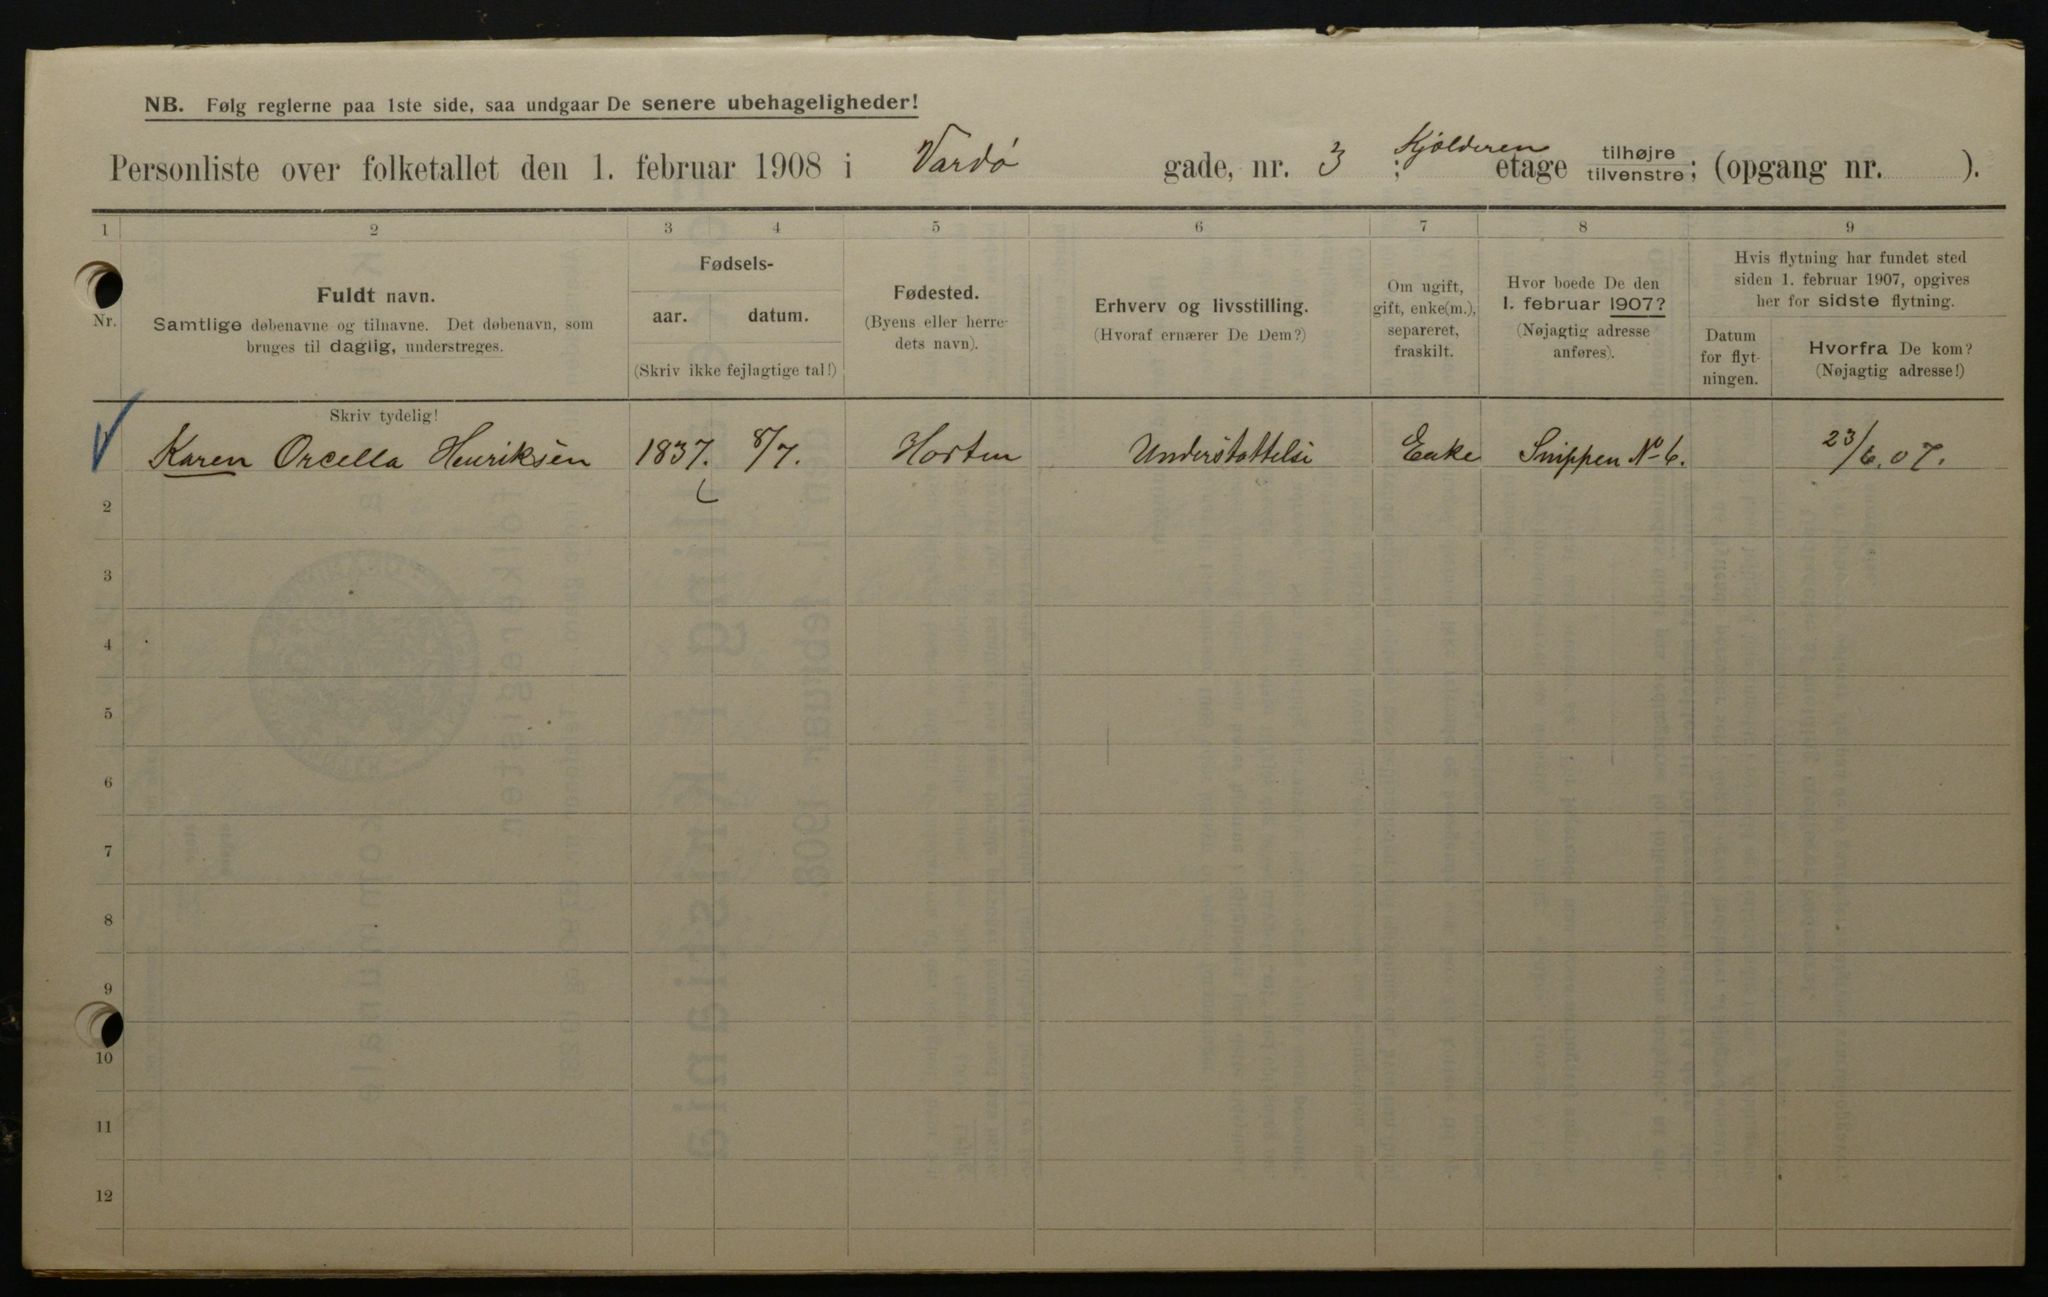 NB. Følg reglerne paa 1ste side, saa undgaar De senere ubehageligheder!
Personliste over folketallet den 1. februar 1908 i Vardø gade, nr. 3 ; Kjelderen etage tilhøjre tilvenstre; (opgang nr. ).
1 2 3 4 5 6 7 8 9
Nr.
Fuldt navn.
Samtlige døbenavne og tilnavne. Det døbenavn, som
bruges til daglig, understreges.
Fødsels-
aar. datum.
(Skriv ikke fejlagtige tal!)
Fødested.
(Byens eller herre-
dets navn).
Erhverv og livsstilling.
(Hvoraf ernærer De Dem?)
Om ugift,
gift, enke(m.),
separeret,
fraskilt.
Hvor boede De den
1. februar 1907?
(Nøjagtig adresse
anføres).
Hvis flytning har fundet sted
siden 1. februar 1907, opgives
her for sidste flytning.
Datum
for flyt-
ningen.
Hvorfra De kom?
(Nøjagtig adresse!)
Skriv tydelig!
1 Karen Orcella Henriksen 1837. 8/7. Horten Understøttelse Enke Snippen No 6. 23/6.07.
2
3
4
5
6
7
8
9
10
11
12